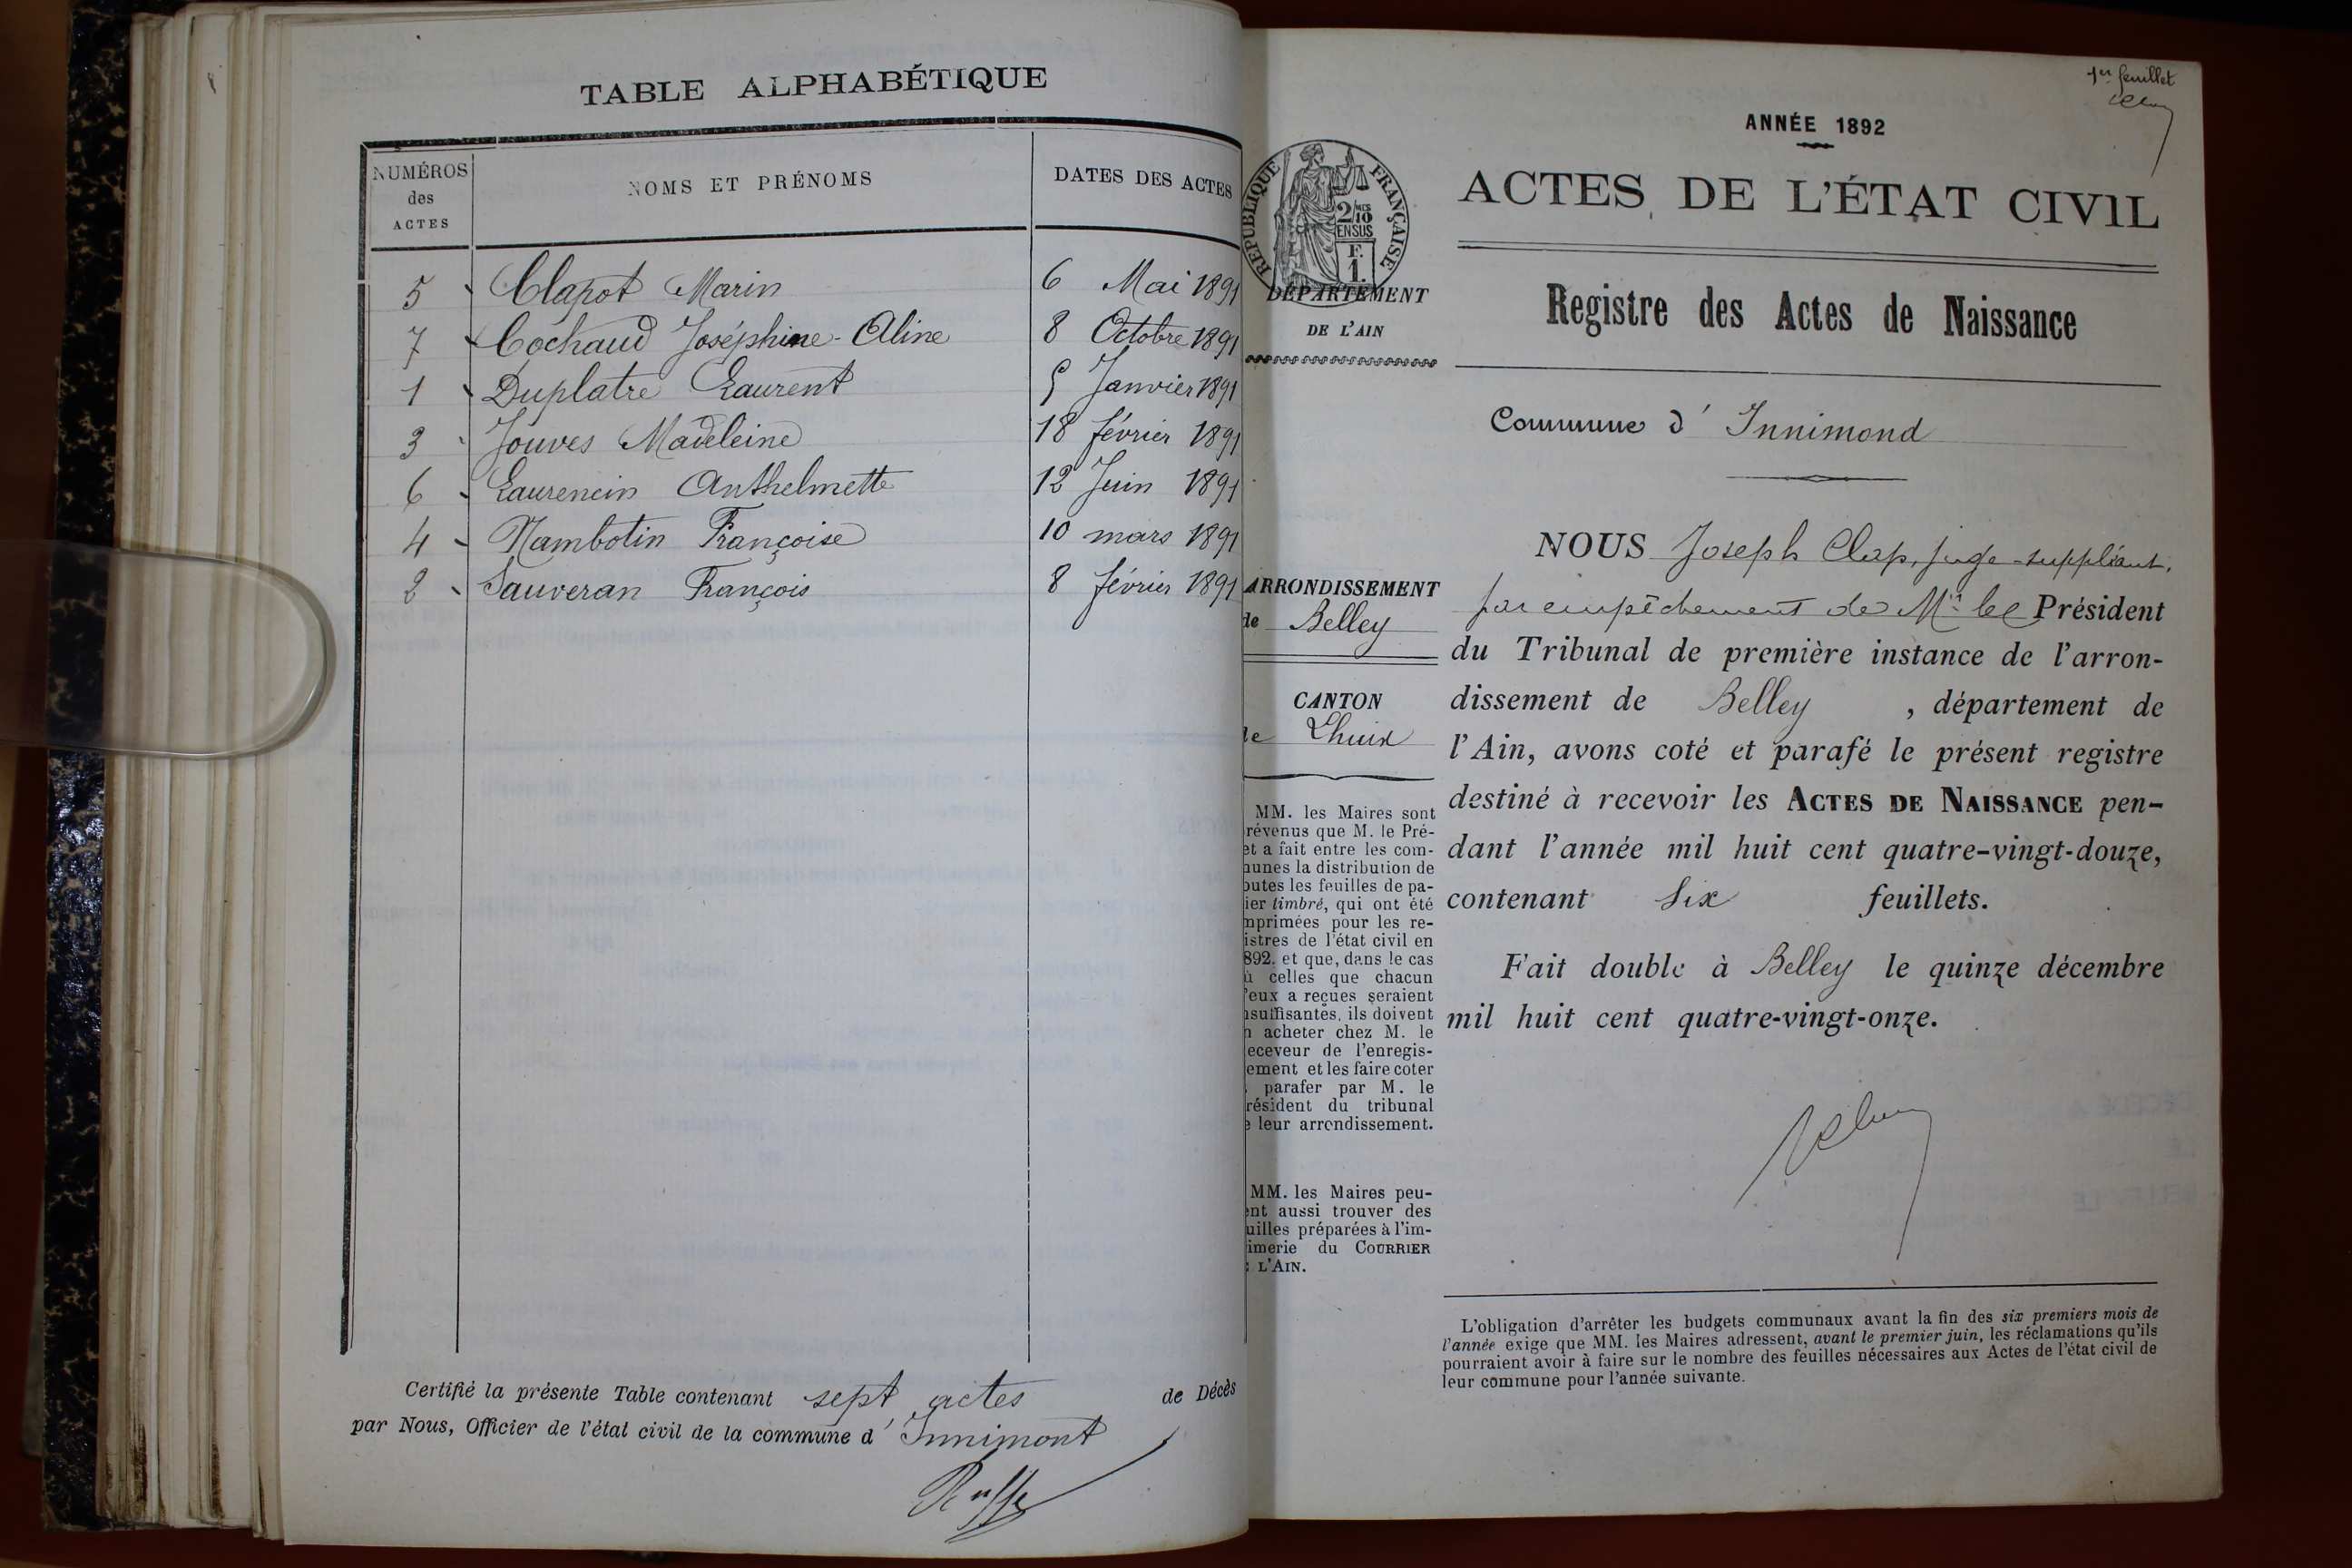 TABLE ALPHABÉTIQUE
NUMÉROS
des
ACTES
NOMS ET PRÉNOMS
DATES DES ACTES
5 Clapot Marin 6 Mai 1891
7 Cochaud Joséphine-Aline 8 Octobre 1891
1 Duplatre Laurent 5 Janvier 1891
3 Jouves Madeleine 18 février 1891
6 Laurencin Anthelmette 12 Juin 1891
4 Nambotin Françoise 10 mars 1891
2 Sauveran François 8 février 1891
Certifié la présente Table contenant sept actes de Décès
par Nous, Officier de l'état civil de la commune d' Innimont
1er feuillet
ANNÉE 1892
ACTES DE L'ÉTAT CIVIL
Registre des Actes de Naissance
Commune d' Innimond
RÉPUBLIQUE FRANÇAISE
2/10
EN SUS
F.
1.
DÉPARTEMENT
DE L'AIN
ARRONDISSEMENT
de Belley
CANTON
le Lhuix
MM. les Maires sont
révenus que M. le Pré-
et a fait entre les com-
nunes la distribution de
outes les feuilles de pa-
ier timbré, qui ont été
mprimées pour les re-
istres de l'état civil en
892. et que, dans le cas
ù celles que chacun
'eux a reçues seraient
nsuffisantes, ils doivent
n acheter chez M. le
eceveur de l'enregis-
ement et les faire coter
parafer par M. le
résident du tribunal
e leur arrondissement.
MM. les Maires peu-
ent aussi trouver des
uilles préparées à l'im-
imerie du COURRIER
L'AIN.
NOUS Joseph Clap, juge-suppléant,
par empêchement de Mr. le Président
du Tribunal de première instance de l'arron-
dissement de Belley , département de
l'Ain, avons coté et parafé le présent registre
destiné à recevoir les ACTES DE NAISSANCE pen-
dant l'année mil huit cent quatre-vingt-douze,
contenant Six feuillets.
Fait double à Belley le quinze décembre
mil huit cent quatre-vingt-onze.
L'obligation d'arrêter les budgets communaux avant la fin des six premiers mois de
l'année exige que MM. les Maires adressent, avant le premier juin, les réclamations qu'ils
pourraient avoir à faire sur le nombre des feuilles nécessaires aux Actes de l'état civil de
leur commune pour l'année suivante.